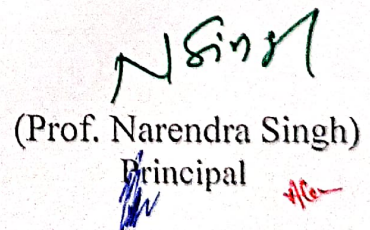 NSingh
(Prof. Narendra Singh)
Principal